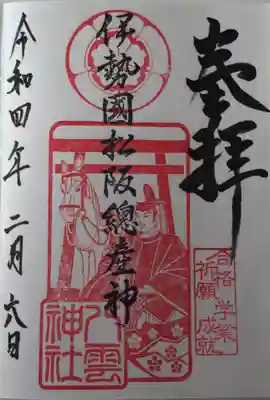 奉拝
合格学業
祈願成就
伊勢國松阪總産神
八雲
神社
令和四年二月六日